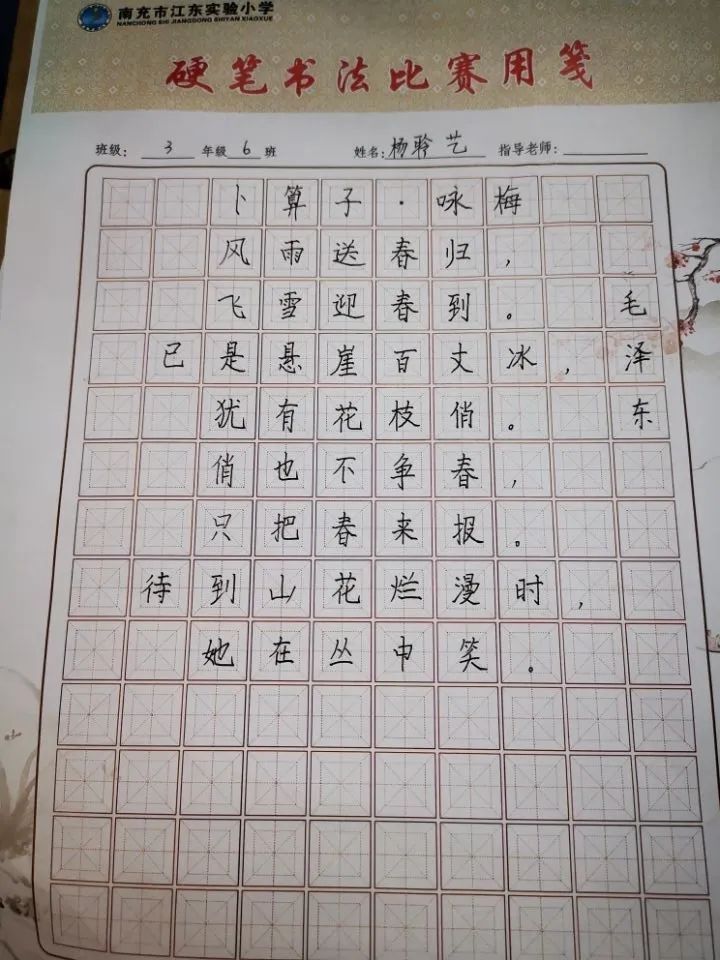 南充市江东实验小学
NANCHONG SHI JIANGDONG SHIYAN XIAOXUE
硬笔书法比赛用笺
班级: 3 年级 6 班 姓名: 杨聆艺 指导老师:
卜算子·咏梅
风雨送春归，
飞雪迎春到。
已是悬崖百丈冰，
犹有花枝俏。
俏也不争春，
只把春来报。
待到山花烂漫时，
她在丛中笑。
毛泽东